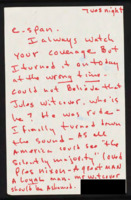 Tues night
C-span.
I always watch
your coverage But
I turned it on today
at the wrong time.
could not Believe that
Jules witcover, who is
he? He was rote-
I finally turned down
the sound. As all
America could see "the
Silently majority" loved
Pres Nixon. A great MAN
A Loyal man. mr witcover
should be Ashamed.